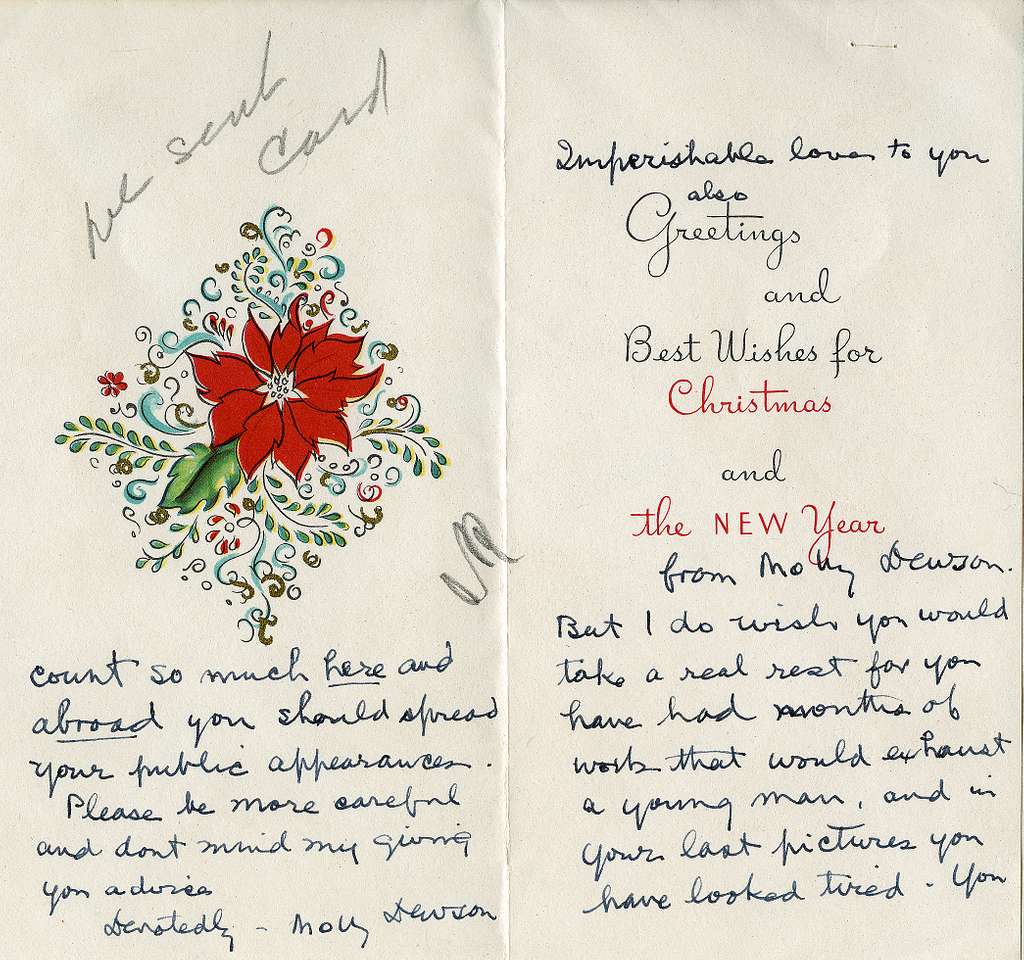 sent
card
Imperishable love to you
also
Greetings
and
Best Wishes for
Christmas
and
the NEW Year
from Molly Dewson.
But I do wish you would
take a real rest for you
have had months of
work that would exhaust
a young man, and in
your last pictures you
have looked tired - You
count so much here and
abroad you should spread
your public appearances.
Please be more careful
and dont mind my giving
you advice
Devotedly - Molly Dewson